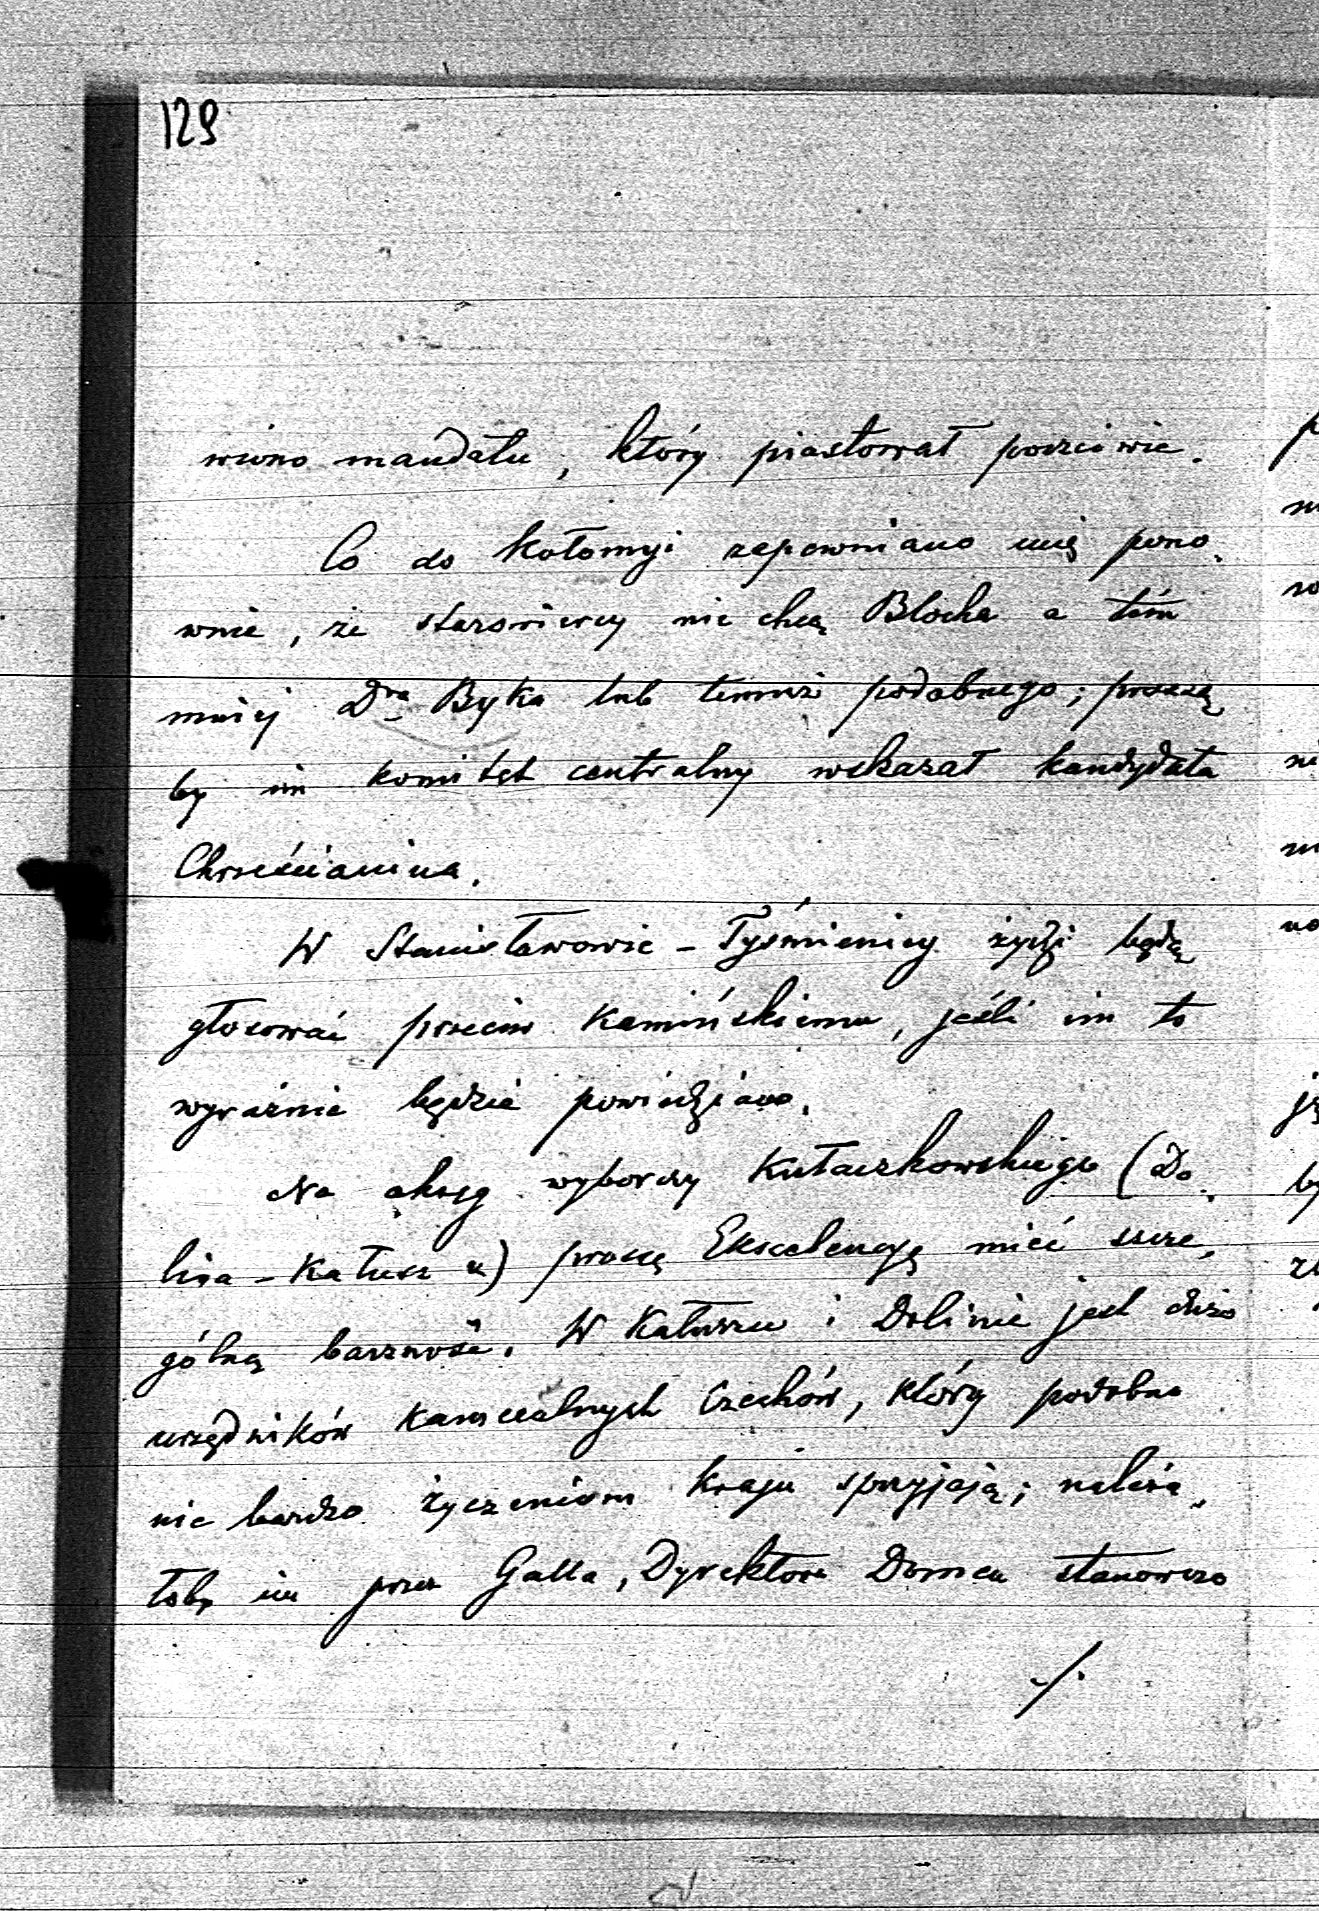 129
wiono mandatu, który piastował poczciwie.
Co do Kołomyi zapewniano mię pono,
wnie, że starowiercy nie chcą Blocha a tém
mniej Dra Byka lub temuż podobnego; proszą
by im komitet centralny wskazał kandydata
Chrześcianina.
W Stanisławowie - Tyśmienicy żydzi będą
głosować przeciw Kamińskiemu, jeśli im to
wyraźnie będzie powiedziano.
Na okręg wyborczy Kułaczkowskiego (Do,
lina - Kałusz) proszę Ekscelencyę mieć szcze,
gólną baczność. W Kałuszu i Dolinie jest dużo
urzędników kameralnych Czechów, którzy podobno
nie bardzo życzeniom kraju sprzyjają; należa,
łoby im przez Galla, Dyrektora Domen stanowczo
./.